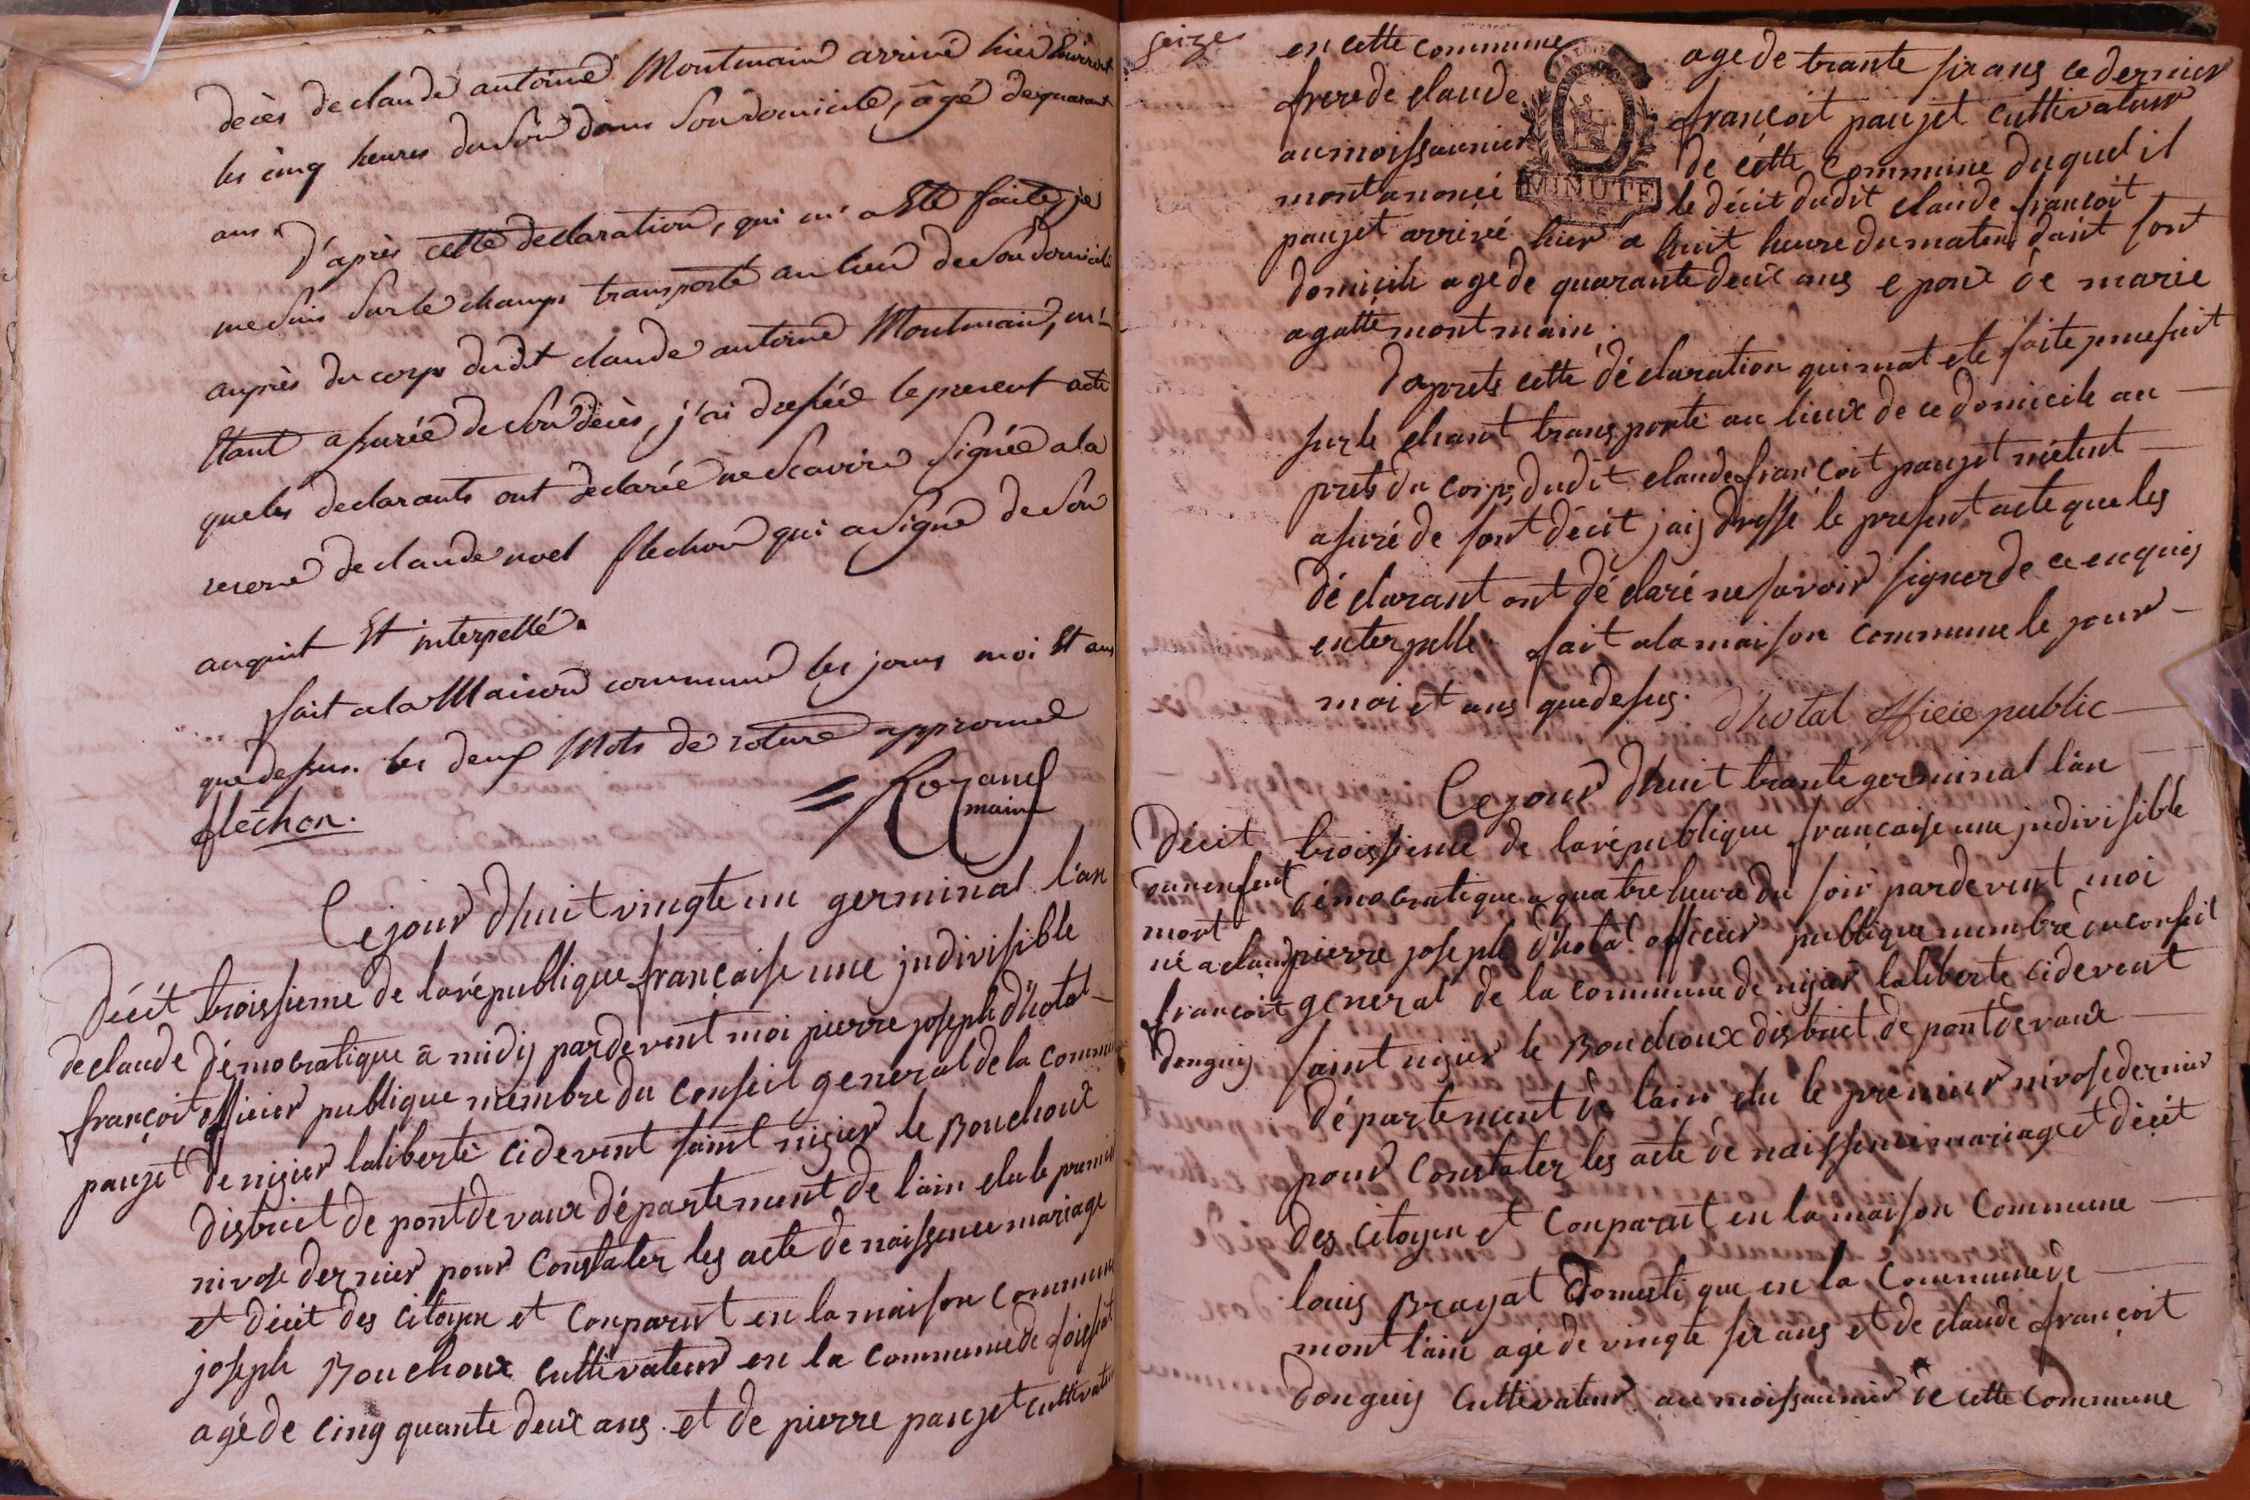 decès de claude antoine Montmain arrivé hier
les cinq heures du Soir dans Son domicile, âgé de quarant
ans.
D'après cette declaration, qui m'a Eté faite, je
me Suis Sur le champs transporté au lieu de Son domicile
auprès du corps dudit claude antoine Montmain, m'é-
Etant assurée de Son decès, j'ai dressée le present acte
que les declarants ont declarée ne Scavoire Signée a la
reserve de claude noel flechon qui a Signé de Son
anquit Et interpellé.
fait a la Maison commune les jours moi Et ans
que dessus. les deux Mots de roture approuvé
flechon.
maire
Cejour dhuit vingte un germinal l'an
Décit troissieme de la république française une jndivisible
de claude démocratique a midy pardevent moi pierre joseph Dhotal
françoit officier publique membre du conseil general de la commu
paujet de nisier laliberté cidevent saint nisier le Bouchoux
district de pontdevaux département de l'ain elu le premier
nivose dernier pour Constater les acte de naissence mariage
et décit des citoyen et Conparut en la maison commune
joseph Bouchoux Cultivateur en la commune de foissiat
agé de cing quante deux ans. et de pierre paujet cultivateur
seize
en cette commune agede trante sir ans ce dernier
frere de claude françoit paujet cultivateur
au moissaunier de cette commune duquel il
mont anoncé le décit dudit claude françoit
paujet arrivé hier a huit heure du maten dant sont
domicile agede quarante deux ans epoux de marie
agatte mont main.
Daprets cette déclaration qui mat ete faite je me suit
sur le chant transporté au lieux de ce domicile au
prets du corps dudit claude françoit paujet métent
asuré de sont décit jais dressé le present acte que les
déclarant ont déclaré ne savoir signer de ce enquis
enterpelle. fait a la maison commune le jour
moi et ans que desus. Dhotal officie public
Cejour dhuit trante germinal l'an
Décit troissieme de la république française une jndivisible
dun enfent démocratique a quatre heure du soir pardevent moi
mort
né a claude pierre joseph Dhotal officier publique membre du conseil
françoit general de la commune de nisier laliberté cidevent
donguis saint nisier le Bouchoux district de pontdevaux
département de lain elu le premier nivose dernier
pour Constater les acte de naissence mariage et décit
des citoyen et Conparut en la maison Commune
louis Brayat Domestique en la Commune de
mont lain agé de vingte sir ans et de claude françoit
donguis Cultivateur au moissaunier de cette commune
MINUTE